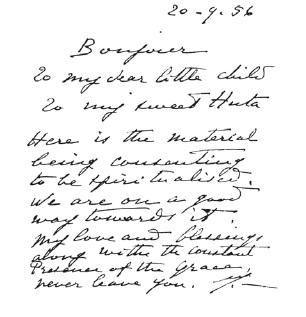 20-9.56
Bonjour
To my dear little child
To my sweet Huta
Here is the material
being consenting
to be spiritualised.
We are on a good
way towards it.
My love and blessings
along with the constant
Presence of the Grace,
never leave you.